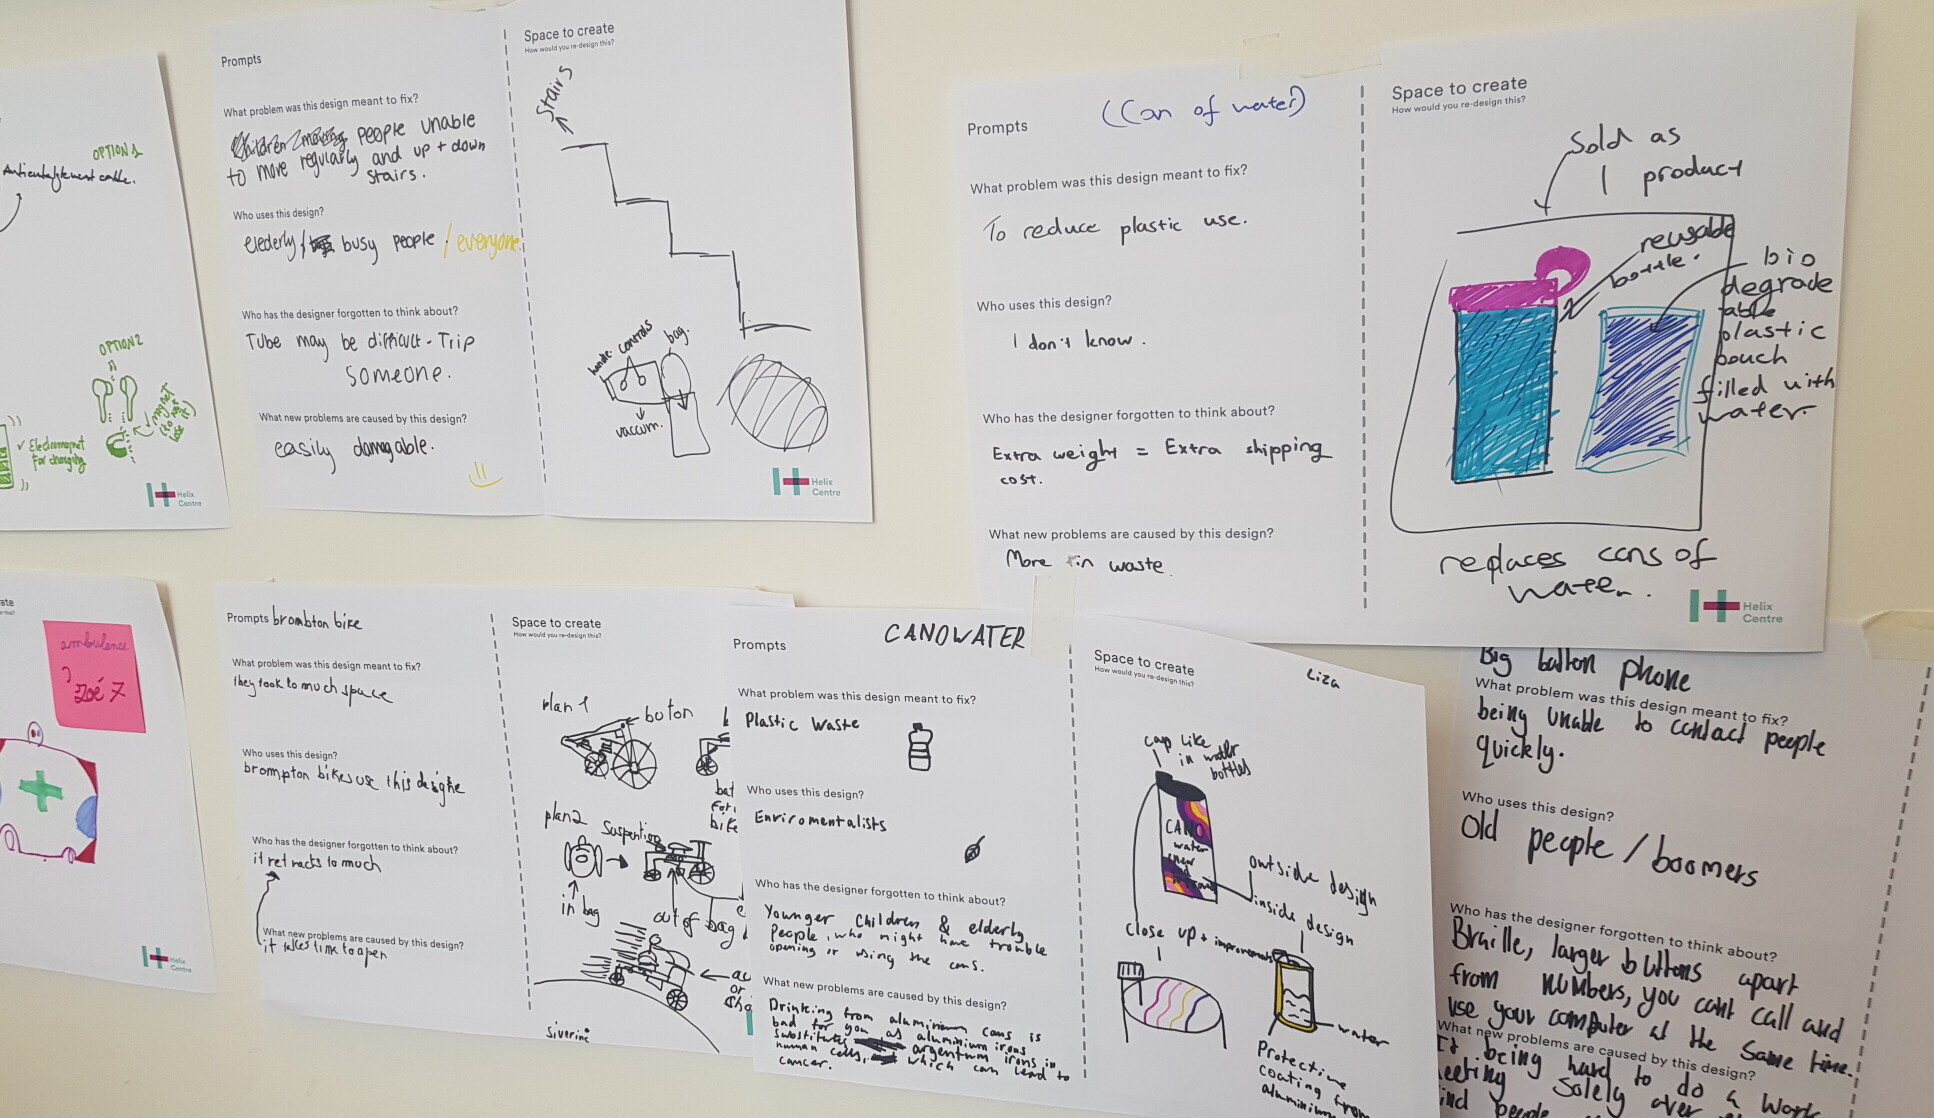 OPTION 1
OPTION 2
✓ Electromagnet
for charging
Helix
Centre
Prompts
What problem was this design meant to fix?
people unable
to move regularly and up + down
stairs.
Who uses this design?
elederly / busy people / everyone
Who has the designer forgotten to think about?
Tube may be difficult - Trip
someone.
What new problems are caused by this design?
easily damgable.
Space to create
How would you re-design this?
Stairs
controls
bag.
vaccum.
Helix
Centre
Prompts
(Can of water)
What problem was this design meant to fix?
To reduce plastic use.
Who uses this design?
I don't know.
Who has the designer forgotten to think about?
Extra weight = Extra shipping
cost.
What new problems are caused by this design?
More tin waste.
Space to create
How would you re-design this?
Sold as
1 product
reusable
bottle.
bio
degrade
able
plastic
pouch
filled with
water.
replaces cans of
water.
Helix
Centre
ate
ambulence
Zoé 7
Helix
Centre
Prompts brombton bike
What problem was this design meant to fix?
they took to much space
Who uses this design?
brompton bikes use this desighe
Who has the designer forgotten to think about?
it retracts to much
What new problems are caused by this design?
it takes time to apen
Space to create
How would you re-design this?
plan 1
boton
bat
bike
plan 2
Suspention
in bag
out of bag
or
Siverine
Prompts
CANOWATER
What problem was this design meant to fix?
Plastic Waste
Who uses this design?
Enviromentalists
Who has the designer forgotten to think about?
Younger children & elderly
People, who might have trouble
opening or using the cans.
What new problems are caused by this design?
Drinking from aluminium cans is
bad for you as aluminium irons
substitutes argentum irons in
human cells, which can lead to
cancer.
Space to create
How would you re-design this?
Liza
cap like
in water
bottles
CANO
water
outside design
inside design
close up + improvements
water
Protective
coating from
aluminium
Big button phone
What problem was this design meant to fix?
being unable to contact people
quickly.
Who uses this design?
Old people / boomers
Who has the designer forgotten to think about?
Braille, larger buttons apart
from numbers, you cant call and
use your computer at the same time.
What new problems are caused by this design?
It being hard to do a work
meeting solely over